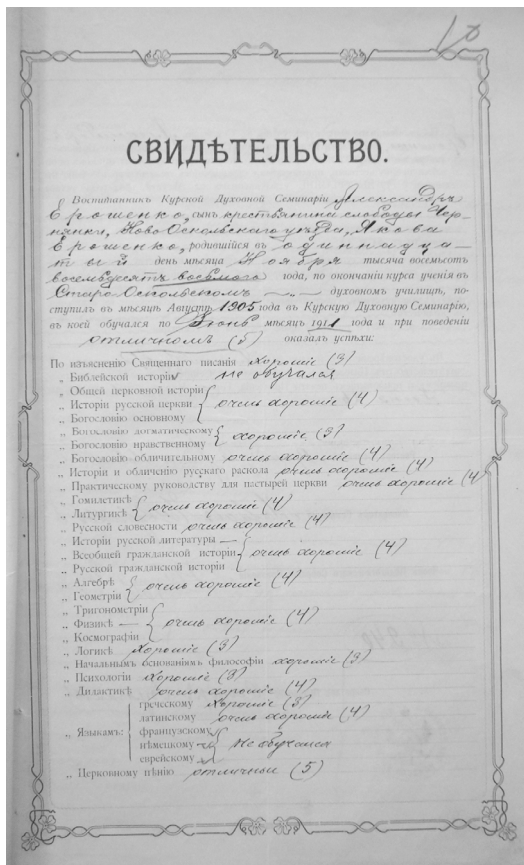 10
СВИДѢТЕЛЬСТВО.
Воспитанникъ Курской Духовной Семинаріи Александръ
Ерошенко, сынъ крестьянина слободы Чер-
нянки, Ново Оскольскаго уѣзда, Якова
Ерошенко, родившійся въ одиннадца-
тый день мѣсяца Ноября тысяча восемьсотъ
восемьдесятъ восьмого года, по окончаніи курса ученія въ
Старо Оскольскомъ духовномъ училищѣ, по-
ступилъ въ мѣсяцѣ Августѣ 1905 года въ Курскую Духовную Семинарію,
въ коей обучался по Іюнь мѣсяцъ 1911 года и при поведеніи
отличномъ (5) оказалъ успѣхи:
По изъясненію Священнаго писанія хорошіе (3)
„ Библейской исторіи не обучался
„ Общей церковной исторіи
„ Исторіи русской церкви очень хорошіе (4)
„ Богословію основному
„ Богословію догматическому
„ Богословію нравственному хорошіе (3)
„ Богословію обличительному очень хорошіе (4)
„ Исторіи и обличенію русскаго раскола очень хорошіе (4)
„ Практическому руководству для пастырей церкви очень хорошіе (4
„ Гомилетикѣ
„ Литургикѣ очень хорошіе (4)
„ Русской словесности очень хорошіе (4)
„ Исторіи русской литературы —
„ Всеобщей гражданской исторіи очень хорошіе (4)
„ Русской гражданской исторіи
„ Алгебрѣ очень хорошіе (4)
„ Геометріи
„ Тригонометріи
„ Физикѣ — очень хорошіе (4)
„ Космографіи
„ Логикѣ хорошіе (3)
„ Начальнымъ основаніямъ философіи хорошіе (3)
„ Психологіи хорошіе (3)
„ Дидактикѣ очень хорошіе (4)
греческому хорошіе (3)
латинскому очень хорошіе (4)
„ Языкамъ: французскому
нѣмецкому не обучался
еврейскому
„ Церковному пѣнію отличные (5)